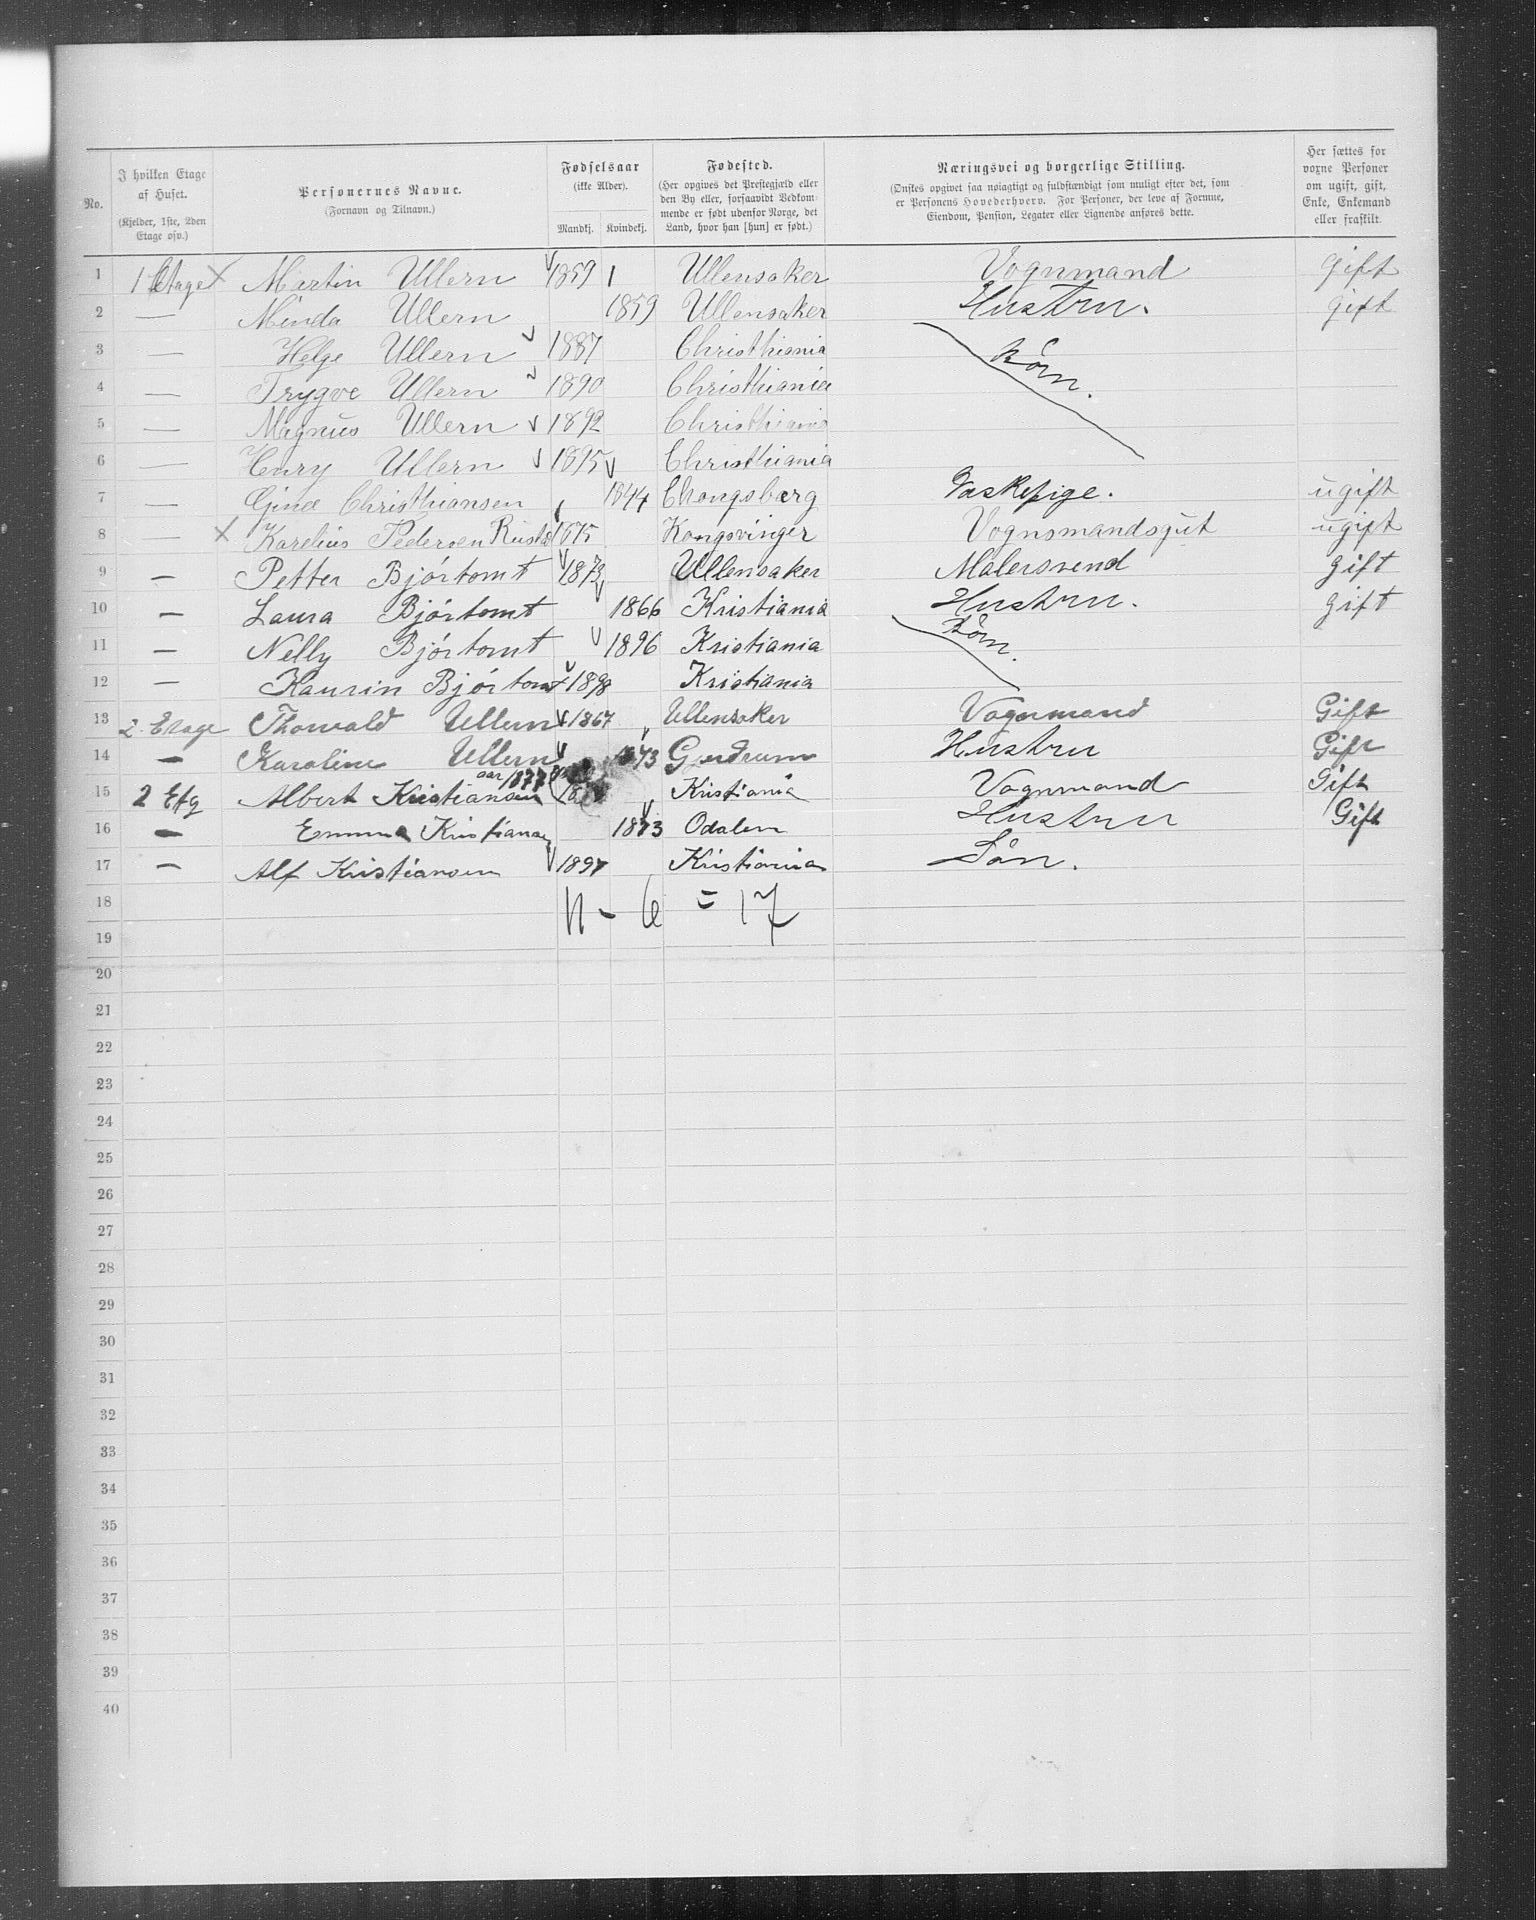 No. | I hvilken Etage af Huset. (Kjelder, 1ste, 2den Etage osv.) | Personernes Navne. (Fornavn og Tilnavn.) | Fødselsaar (ikke Alder). Mandkj. Kvindekj. | Fødested. (Her opgives det Prestegjæld eller den By eller, forsaavidt Vedkommende er født udenfor Norge, det Land, hvor han [hun] er født.) | Næringsvei og borgerlige Stilling. (Ønskes opgivet saa nøiagtigt og fuldstændigt som muligt efter det, som er Personens Hovederhverv. For Personer, der leve af Formue, Eiendom, Pension, Legater eller Lignende anføres dette. | Her sættes for voxne Personer om ugift, gift, Enke, Enkemand eller fraskilt.
1 1 Etage x Martin Ullern 1859 1 Ullensaker Vognmand gift
2 — Minda Ullern 1859 Ullensaker Hustru. gift
3 — Helge Ullern 1887 Christhiania Börn.
4 — Trygve Ullern 1890 Christhiania
5 — Magnus Ullern 1892 Christhiania
6 — Henry Ullern 1895 Christhiania
7 — Gina Christhiansen 1844 Chongsberg Vaskepige. ugift
8 — x Karelius Pedersen Rustad 1875 Kongsvinger Vognsmandsgut ugift
9 — Petter Bjórtomt 1873 Ullensaker Malersvend gift
10 — Laura Bjórtomt 1866 Kristiania Hustru. gift
11 — Nelly Bjórtomt 1896 Kristiania Börn.
12 — Kaurin Bjórtomt 1898 Kristiania
13 2. Etage Thorvald Ullern 1867 Ullensaker Vognmand Gift
14 — Karoline Ullern 1873 Gjerdrum Hustru Gift
15 2 Etg Albert Kristiansen aar 1877 18 Kristiania Vognmand Gift
16 — Emma Kristiansen 1873 Odalen Hustru Gift
17 — Alf Kristiansen 1897 Kristiania Sön.
18 11 - 6 = 17
19
20
21
22
23
24
25
26
27
28
29
30
31
32
33
34
35
36
37
38
39
40